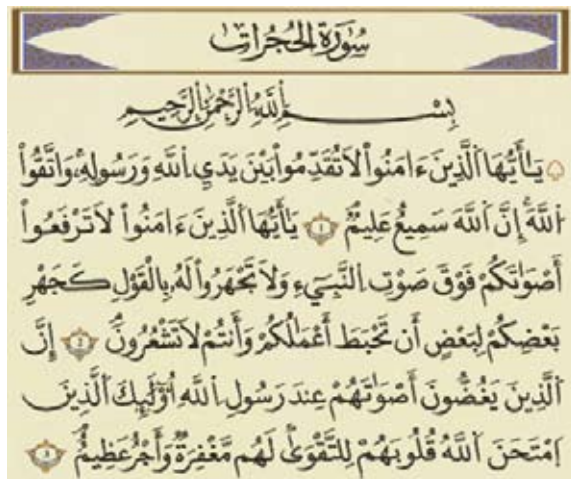 سُورَةُ الْحُجُرَاتِ
بِسْمِ اِللَّهِ اِلرَّحْمَٰنِ اِلرَّحِيمِ
يَٰأَيُّهَا اَلذِينَ ءَامَنُواْ لَا تُقَدِّمُواْ بَيْنَ يَدَيِ اِللَّهِ وَرَسُولِهِۦ وَاتَّقُواْ
اُللَّهَ إِنَّ اَللَّهَ سَمِيعٌ عَلِيمٌ ١ يَٰأَيُّهَا اَلذِينَ ءَامَنُواْ لَا تَرْفَعُواْ
أَصْوَٰتَكُمْ فَوْقَ صَوْتِ اِلنَّبِيٓءِ وَلَا تَجْهَرُواْ لَهُۥ بِالْقَوْلِ كَجَهْرِ
بَعْضِكُمْ لِبَعْضٍ أَن تَحْبَطَ أَعْمَٰلُكُمْ وَأَنتُمْ لَا تَشْعُرُونَ ٢ إِنَّ
اَلذِينَ يَغُضُّونَ أَصْوَٰتَهُمْ عِندَ رَسُولِ اِللَّهِ أُوْلَٰئِكَ اَلذِينَ
اَمْتَحَنَ اَللَّهُ قُلُوبَهُمْ لِلتَّقْوَىٰ لَهُم مَّغْفِرَةٌ وَأَجْرٌ عَظِيمٌ ٣